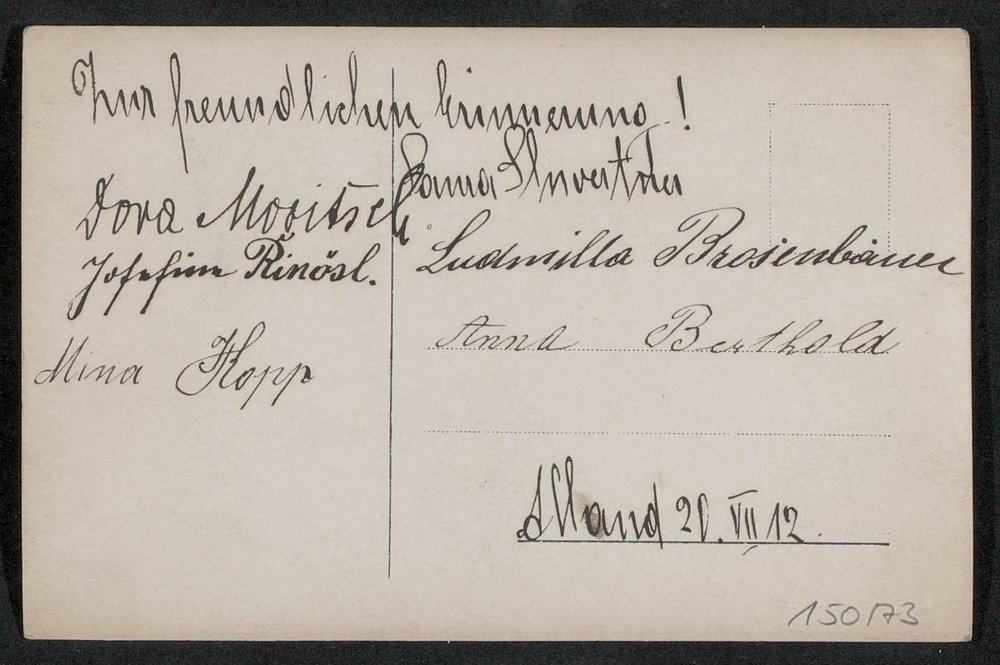 Zur freundlichen Erinnerung !
Dora Moritsch
Josefine Rinösl.
Mina Kopp
Ludmilla Brosenbauer
Anna Berthold
Alland 20. VII 12.
150/73